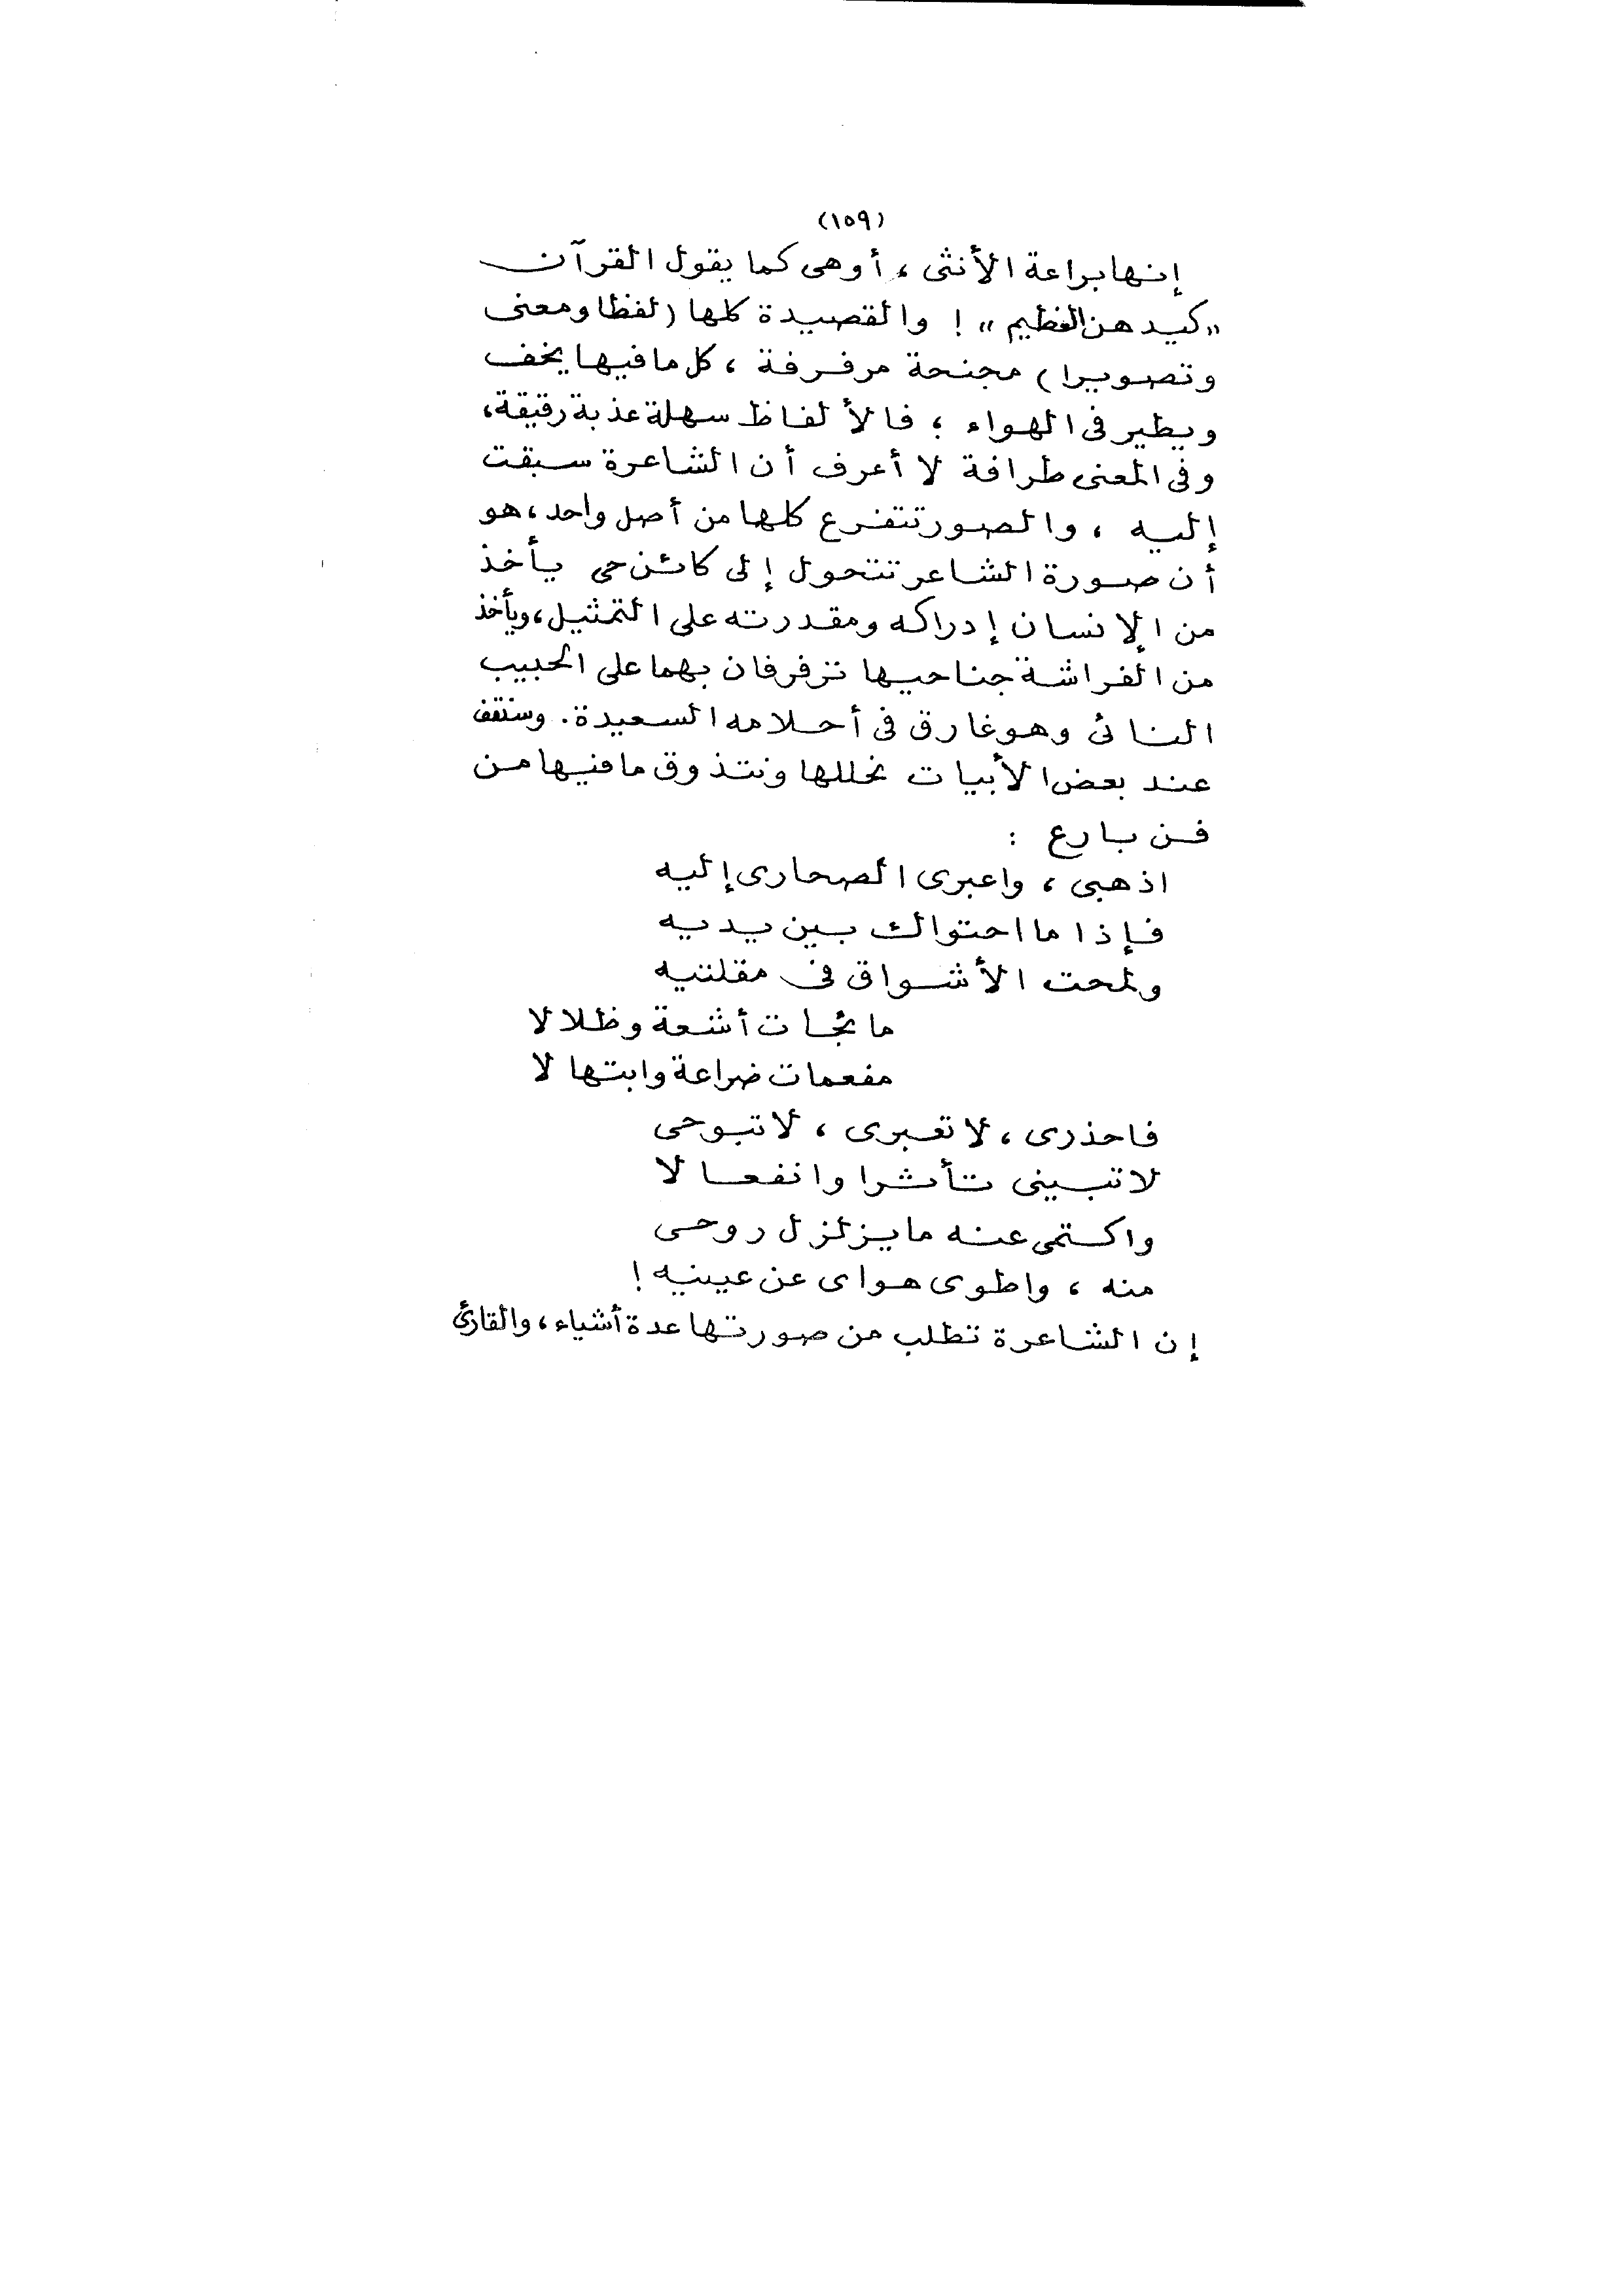 (١٥٩)
إنها براعة الأنثى ، أو هى كما يقول القرآن
"كيد هن العظيم" ! والقصيدة كلها (لفظا ومعنى
وتصويرا) مجنحة مرفرفة ، كل ما فيها يخف
ويطير فى الهواء ؛ فالألفاظ سهلة عذبة رقيقة،
وفى المعنى طرافة لا أعرف أن الشاعرة سبقت
إليه ، والصور تتفرع كلها من أصل واحد، هو
أن صورة الشاعر تتحول إلى كائن حى يأخذ
من الإنسان إدراكه ومقدرته على التمثيل، ويأخذ
من الفراشة جناحيها تزفرفان بهما على الحبيب
النائى وهو غارق فى أحلامه السعيدة. وسنقف
عند بعض الأبيات نحللها ونتذوق ما فيها من
فن بارع :
اذهبى ، واعبرى الصحارى إليه
فإذا ما احتواك بين يديه
ولمحت الأشواق فى مقلتيه
مائجات أشعة وظلالا
مفعمات ضراعة وابتهالا
فاحذرى ، لا تعبرى ، لا تبوحى
لا تبينى تأثرا وانفعالا
واكتمى عنه ما يزلزل روحى
منه ، واطوى هواى عن عينيه !
إن الشاعرة تطلب من صورتها عدة أشياء، والقارئ